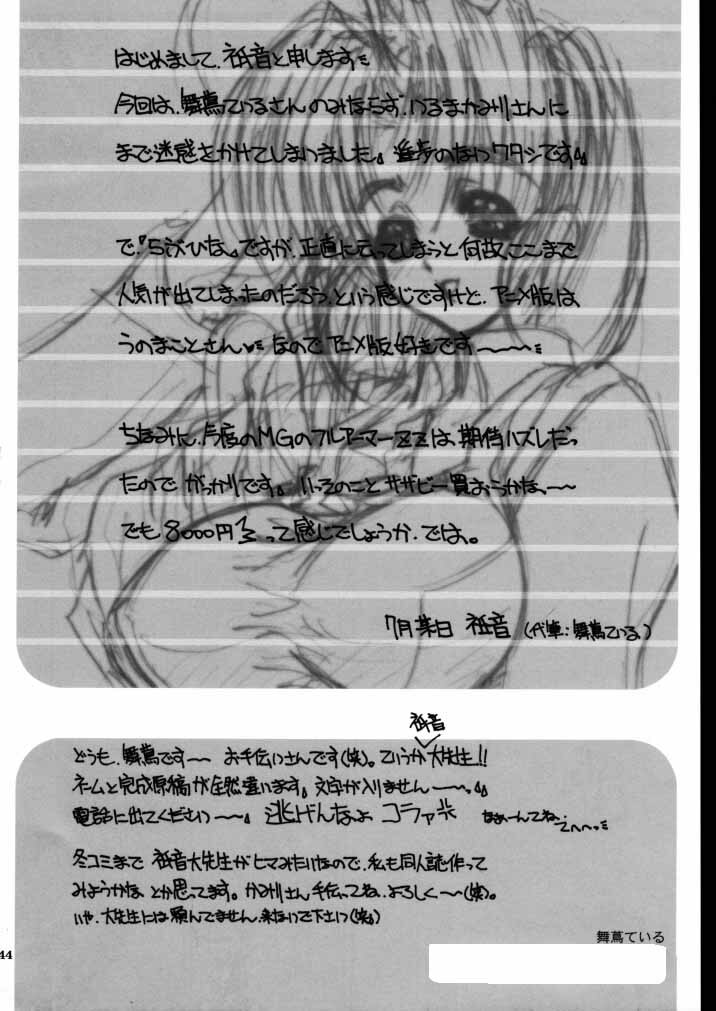 はじめまして、祇音と申します
今回は、舞蔦ているさんのみならず、いるまかみりさんに
まで迷惑をかけてしまいました。進歩のないワタシです。
で『らぶひな』ですが、正直に云ってしまうと何故、ここまで
人気が出てしまったのだろう、という感じですけど、アニメ版は
うのまことさん なのでアニメ版好きです〜〜〜
ちなみに、今度のMGのフルアーマーZZは、期待ハズレだっ
たのでがっかりです。いっそのことサザビー買おうかな、〜〜
でも8000円 って感じでしょうか、では。
7月某日 祇音 (代筆:舞蔦ている)
祇音
どうも、舞蔦です〜〜 お手伝いさんです(笑)。ていうか大先生!!
ネームと完成原稿が全然違います。文字が入りません〜〜。
電話に出てください〜〜。逃げんなよ コラァ なぁーんてね、
てへへっ
冬コミまで 祇音大先生がヒマみたいなので、私も同人誌作って
みようかな、とか思ってます。かみりさん手伝ってね、よろしく〜〜(笑)。
いや、大先生には頼んでません、来ないで下さいっ(笑)
舞蔦ている
44